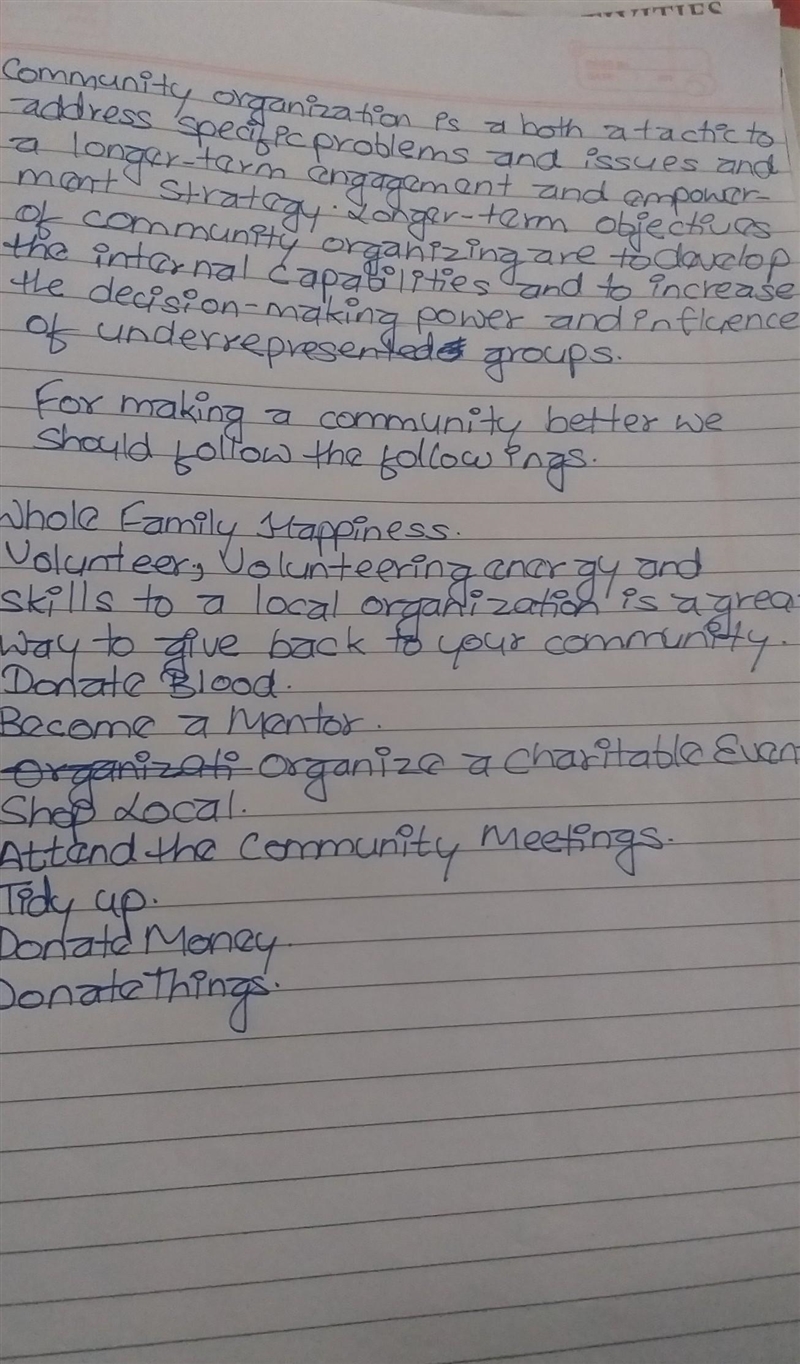 Community organization is a both a tactic to
address specific problems and issues and
a longer-term engagement and empower-
ment strategy. Longer-term objectives
of community organizing are to develop
the internal capabilities and to increase
the decision-making power and influence
of underrepresented groups.
For making a community better we
should follow the followings.
Whole Family Happiness.
Volunteer, Volunteering energy and
skills to a local organization is a grea
way to give back to your community.
Donate Blood.
Become a Mentor.
Organizati Organize a Charitable Even
Shop Local.
Attend the Community Meetings.
Tidy up.
Donate Money
Donate Things.